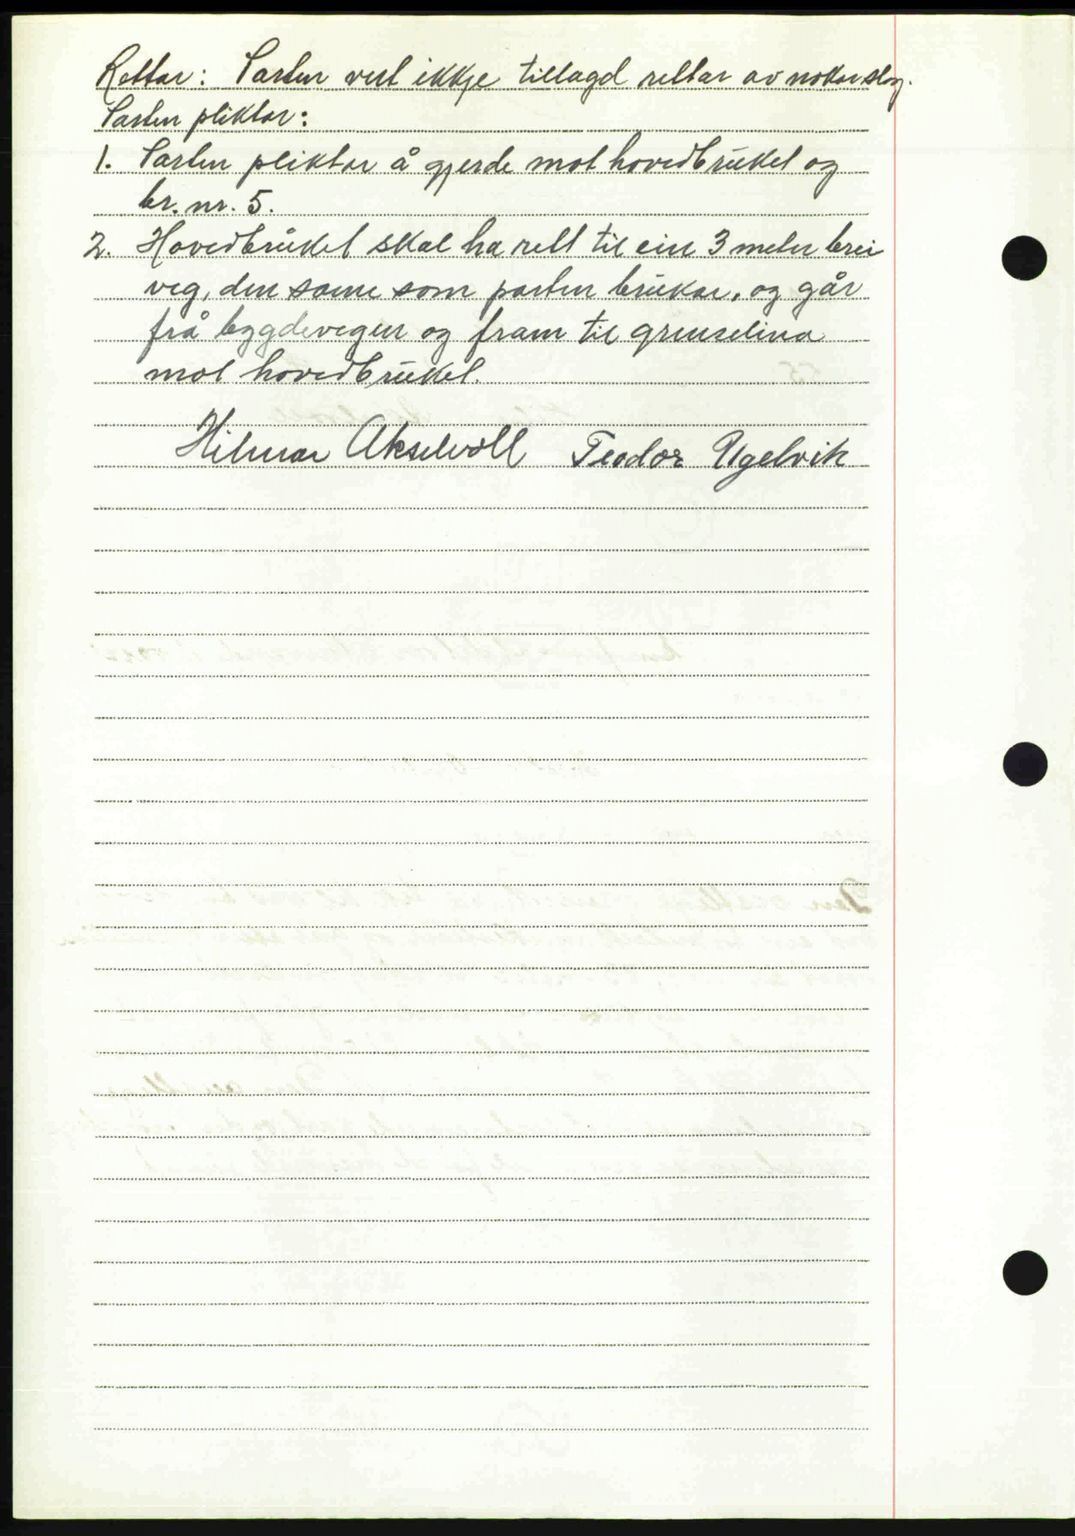 Rettar: Parten vert ikkje tillagd rettar av nokor slag.
Parten pliktar:
1. Parten pliktar å gjerde mot hovedbruket og
br. nr. 5.
2. Hovedbruket skal ha rett til ein 3 meter brei
veg, den same som parten brukar, og går
frå bygdevegen og fram til grenselina
mot hovedbruket.
Hilmar Akselvoll Teodor Ugelvik